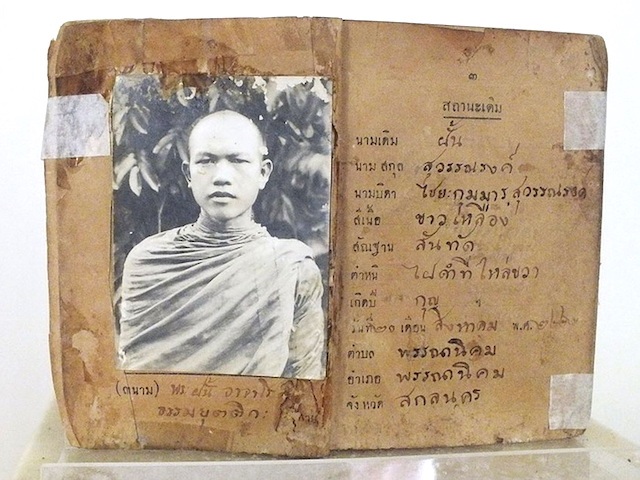 (ฉายา) พระ ฝั้น อาจาโร
ธรรมยุตติกะ
๓
สถานะเดิม
นามเดิม ฝั้น
นาม สกุล สุวรรณรงค์
นามบิดา ไชยะกุมมาร สุวรรณรงค์
สีเนื้อ ขาวเหลือง
สัณฐาน สันทัด
ตำหนิ ไฝดำที่ไหล่ขวา
เกิดปี กุญ
วันที่ ๒๐ เดือน สิงหาคม พ.ศ.
ตำบล พรรณานิคม
อำเภอ พรรณานิคม
จังหวัด สกลนคร